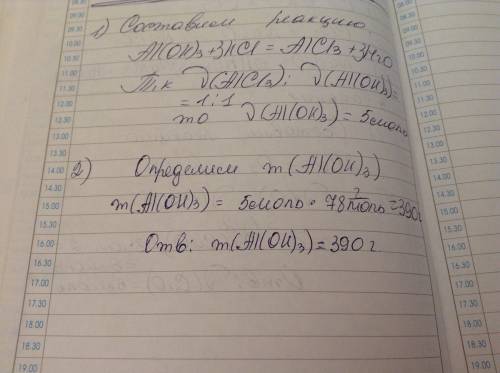 1) Составим реакцию
Al(OH)3+3HCl = AlCl3+3H2O
Т.к ν(AlCl3): ν(Al(OH)3)=
= 1:1
то ν(Al(OH)3) = 5 моль
2) Определим m(Al(OH)3)
m(Al(OH)3) = 5 моль • 78 г/моль = 390 г
Отв: m(Al(OH)3) = 390 г
09.30
10.00
10.30
11.00
11.30
12.00
12.30
13.00
13.30
14.00
14.30
15.00
15.30
16.00
16.30
17.00
17.30
18.00
18.30
19.00